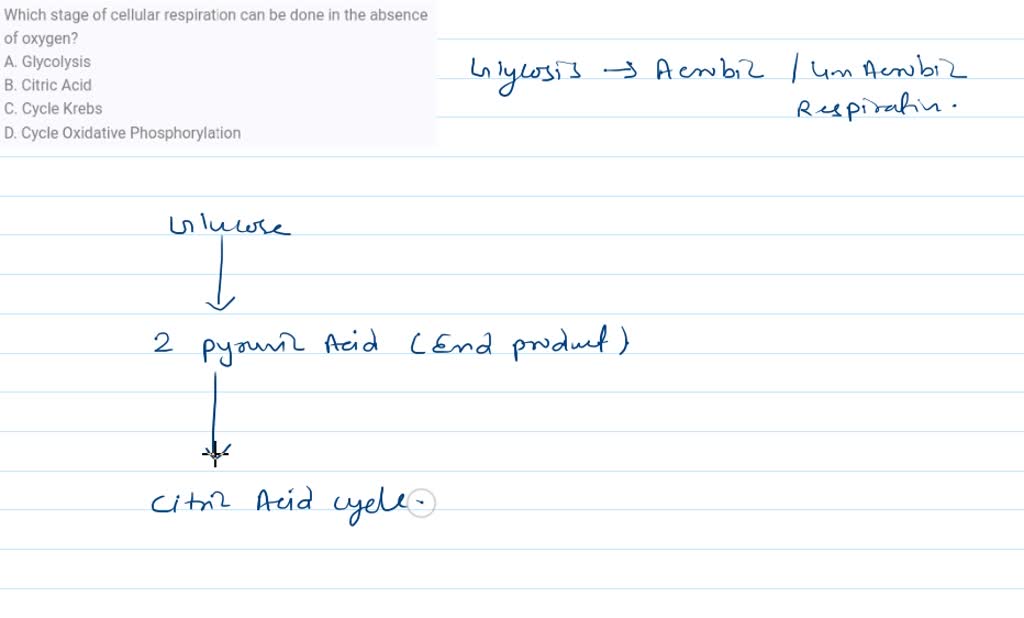 Which stage of cellular respiration can be done in the absence
of oxygen?
A. Glycolysis
B. Citric Acid
C. Cycle Krebs
D. Cycle Oxidative Phosphorylation
Glycosis → Aerobic / Un Aerobic
Respiration.
Glucose
2 pyruvic Acid (End product)
Citric Acid cycle.